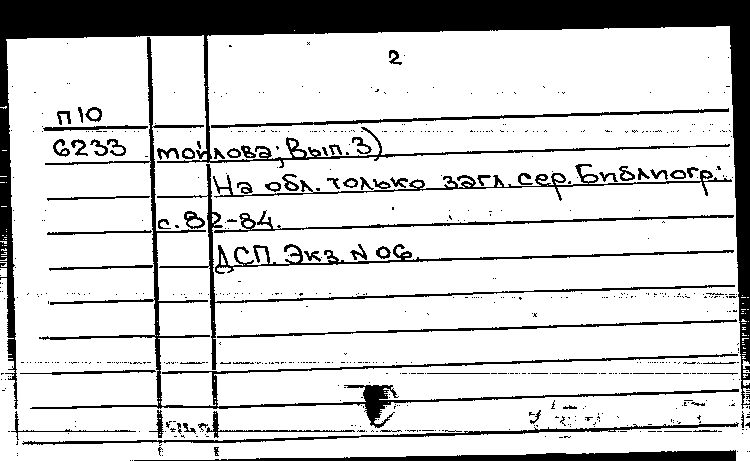 2
П10
6233 мойлова; Вып. 3)
На обл. только загл. сер. Библиогр.:
с. 82-84.
ДСП. Экз. N 06.